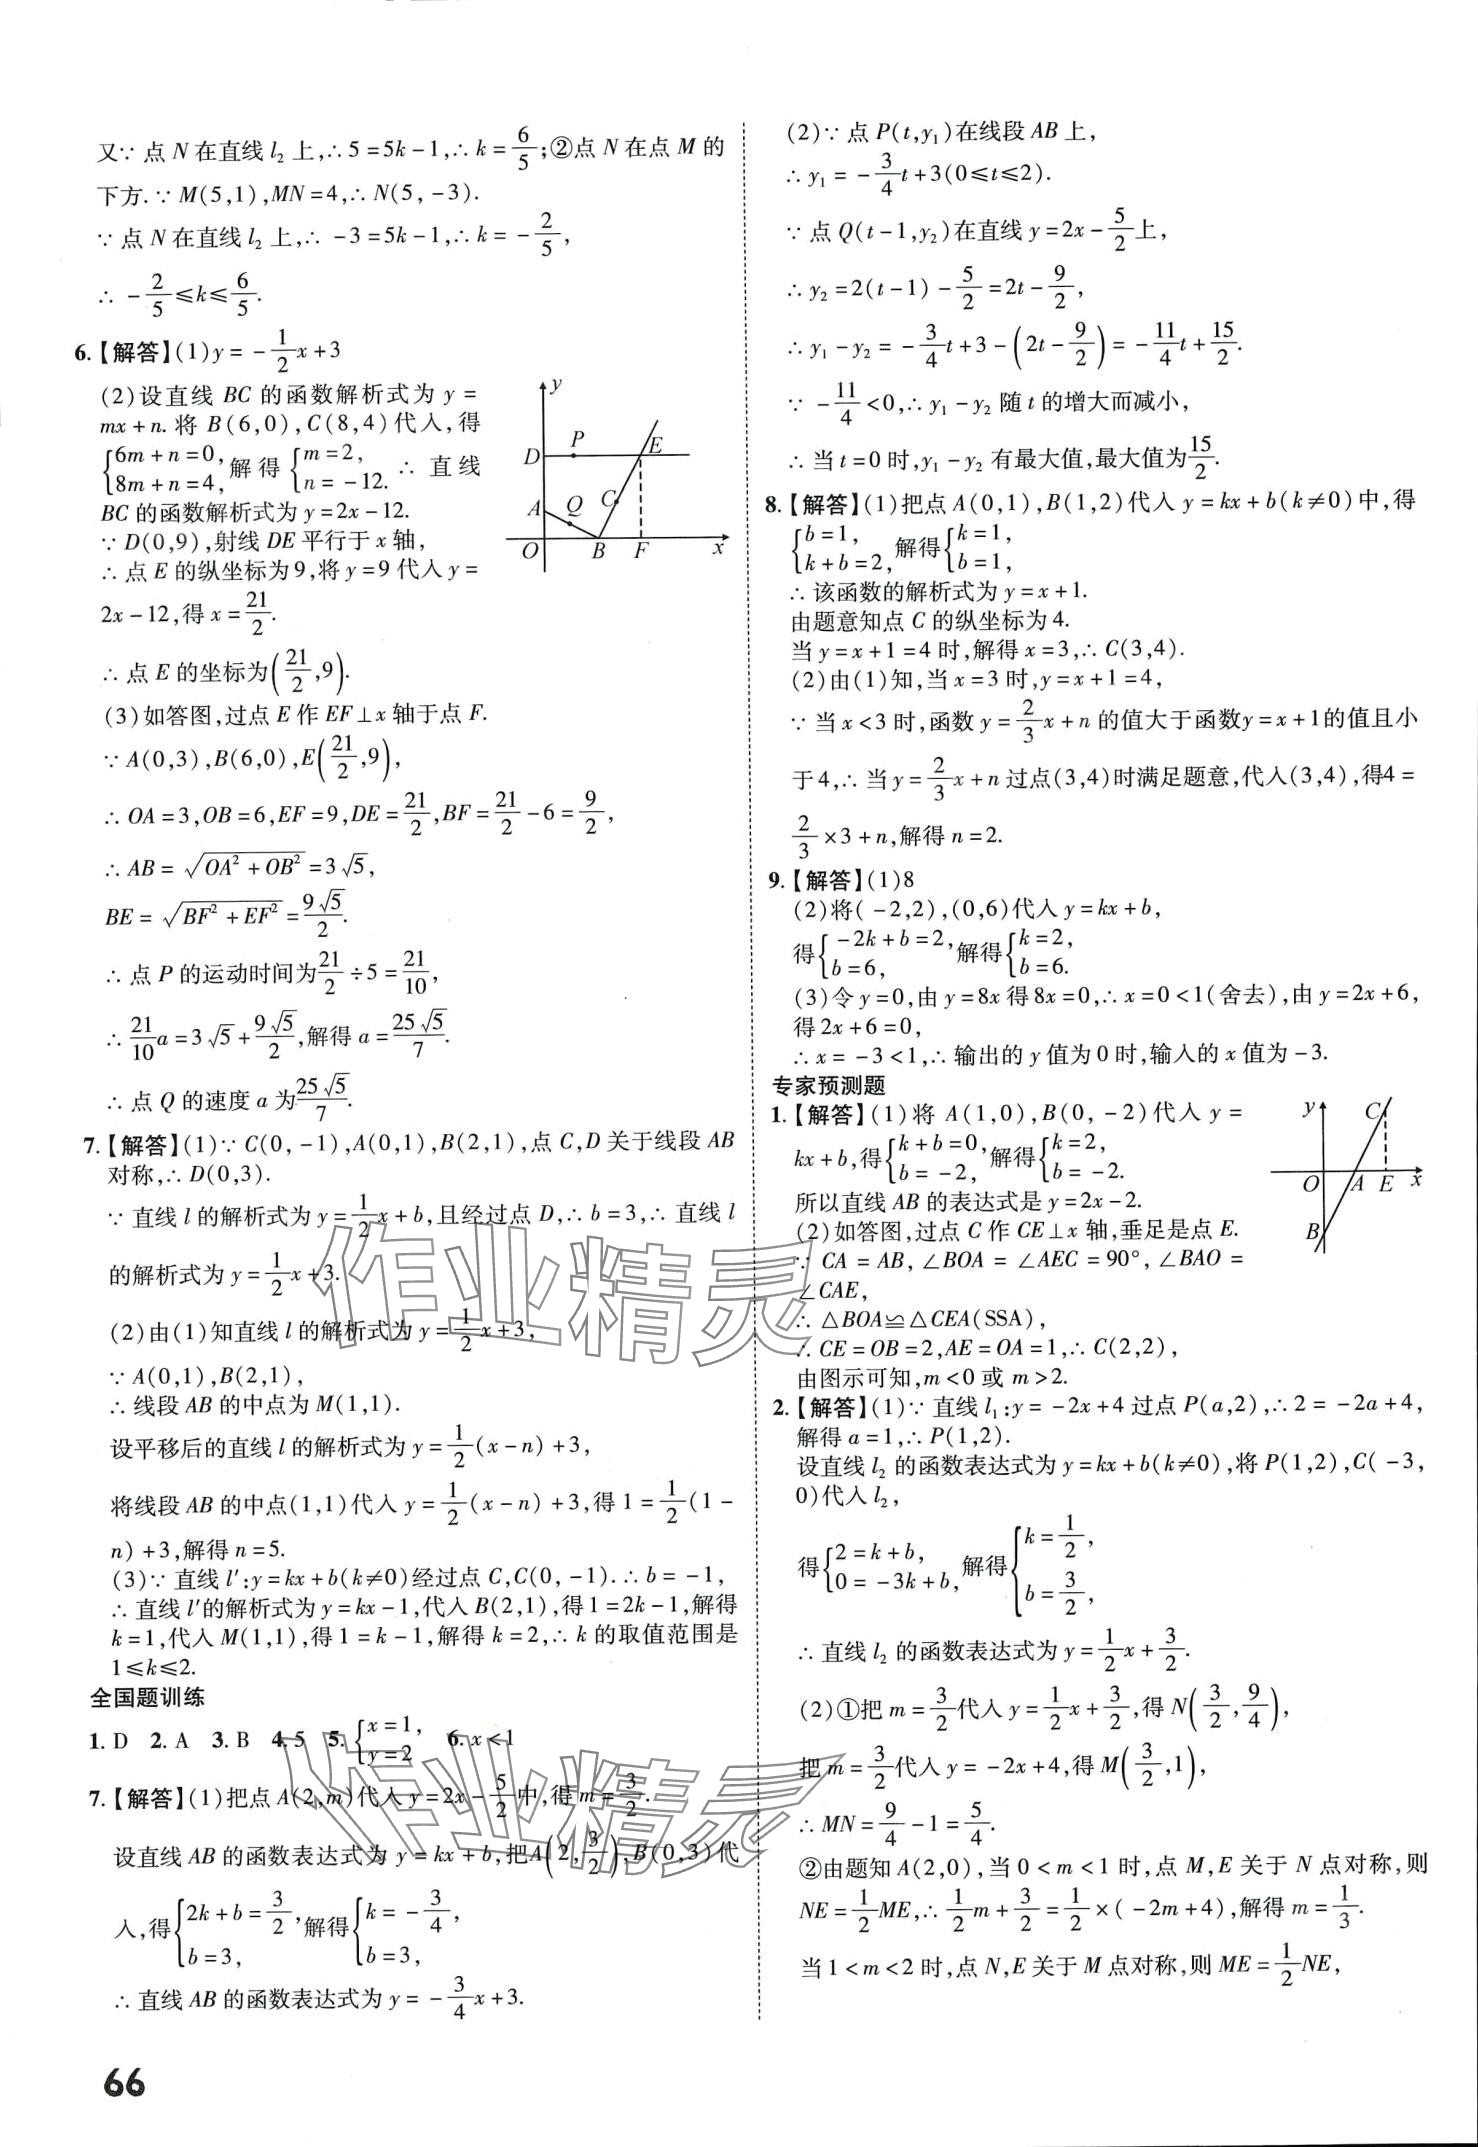 又∵点N在直线l₂上,∴5=5k-1,∴k=6/5;②点N在点M的
下方.∵M(5,1),MN=4,∴N(5,-3).
∵点N在直线l₂上,∴-3=5k-1,∴k=-2/5,
∴-2/5≤k≤6/5.
6.【解答】(1)y=-1/2x+3
(2)设直线BC的函数解析式为y=
mx+n.将B(6,0),C(8,4)代入,得
{6m+n=0, 8m+n=4, 解得{m=2, n=-12. ∴直线
BC的函数解析式为y=2x-12.
∵D(0,9),射线DE平行于x轴,
∴点E的纵坐标为9,将y=9代入y=
2x-12,得x=21/2.
∴点E的坐标为(21/2,9).
(3)如答图,过点E作EF⊥x轴于点F.
∵A(0,3),B(6,0),E(21/2,9),
∴OA=3,OB=6,EF=9,DE=21/2,BF=21/2-6=9/2,
∴AB=√(OA²+OB²)=3√5,
BE=√(BF²+EF²)=9√5/2.
∴点P的运动时间为21/2÷5=21/10,
∴21/10a=3√5+9√5/2,解得a=25√5/7.
∴点Q的速度a为25√5/7.
y
D
P
E
A
Q
C
O
B
F
x
7.【解答】(1)∵C(0,-1),A(0,1),B(2,1),点C,D关于线段AB
对称,∴D(0,3).
∵直线l的解析式为y=1/2x+b,且经过点D,∴b=3,∴直线l
的解析式为y=1/2x+3.
(2)由(1)知直线l的解析式为y=1/2x+3,
∵A(0,1),B(2,1),
∴线段AB的中点为M(1,1).
设平移后的直线l的解析式为y=1/2(x-n)+3,
将线段AB的中点(1,1)代入y=1/2(x-n)+3,得1=1/2(1-
n)+3,解得n=5.
(3)∵直线l′:y=kx+b(k≠0)经过点C,C(0,-1).∴b=-1,
∴直线l′的解析式为y=kx-1,代入B(2,1),得1=2k-1,解得
k=1,代入M(1,1),得1=k-1,解得k=2,∴k的取值范围是
1≤k≤2.
全国题训练
1.D 2.A 3.B 4.5 5.{x=1, y=2 6.x<1
7.【解答】(1)把点A(2,m)代入y=2x-5/2中,得m=3/2.
设直线AB的函数表达式为y=kx+b,把A(2,3/2),B(0,3)代
入,得{2k+b=3/2, b=3, 解得{k=-3/4, b=3,
∴直线AB的函数表达式为y=-3/4x+3.
66
(2)∵点P(t,y₁)在线段AB上,
∴y₁=-3/4t+3(0≤t≤2).
∵点Q(t-1,y₂)在直线y=2x-5/2上,
∴y₂=2(t-1)-5/2=2t-9/2,
∴y₁-y₂=-3/4t+3-(2t-9/2)=-11/4t+15/2.
∵-11/4<0,∴y₁-y₂随t的增大而减小,
∴当t=0时,y₁-y₂有最大值,最大值为15/2.
8.【解答】(1)把点A(0,1),B(1,2)代入y=kx+b(k≠0)中,得
{b=1, k+b=2, 解得{k=1, b=1,
∴该函数的解析式为y=x+1.
由题意知点C的纵坐标为4.
当y=x+1=4时,解得x=3,∴C(3,4).
(2)由(1)知,当x=3时,y=x+1=4,
∵当x<3时,函数y=2/3x+n的值大于函数y=x+1的值且小
于4,∴当y=2/3x+n过点(3,4)时满足题意,代入(3,4),得4=
2/3×3+n,解得n=2.
9.【解答】(1)8
(2)将(-2,2),(0,6)代入y=kx+b,
得{-2k+b=2, b=6, 解得{k=2, b=6.
(3)令y=0,由y=8x得8x=0,∴x=0<1(舍去),由y=2x+6,
得2x+6=0,
∴x=-3<1,∴输出的y值为0时,输入的x值为-3.
专家预测题
1.【解答】(1)将A(1,0),B(0,-2)代入y=
kx+b,得{k+b=0, b=-2, 解得{k=2, b=-2.
所以直线AB的表达式是y=2x-2.
(2)如答图,过点C作CE⊥x轴,垂足是点E.
∵CA=AB,∠BOA=∠AEC=90°,∠BAO=
∠CAE,
∴△BOA≌△CEA(SSA),
∴CE=OB=2,AE=OA=1,∴C(2,2),
由图示可知,m<0或m>2.
y
C
O
A
E
x
B
2.【解答】(1)∵直线l₁:y=-2x+4过点P(a,2),∴2=-2a+4,
解得a=1,∴P(1,2).
设直线l₂的函数表达式为y=kx+b(k≠0),将P(1,2),C(-3,
0)代入l₂,
得{2=k+b, 0=-3k+b, 解得{k=1/2, b=3/2,
∴直线l₂的函数表达式为y=1/2x+3/2.
(2)①把m=3/2代入y=1/2x+3/2,得N(3/2,9/4),
把m=3/2代入y=-2x+4,得M(3/2,1),
∴MN=9/4-1=5/4.
②由题知A(2,0),当0<m<1时,点M,E关于N点对称,则
NE=1/2ME,∴1/2m+3/2=1/2×(-2m+4),解得m=1/3.
当1<m<2时,点N,E关于M点对称,则ME=1/2NE,
作业精灵
作业精灵